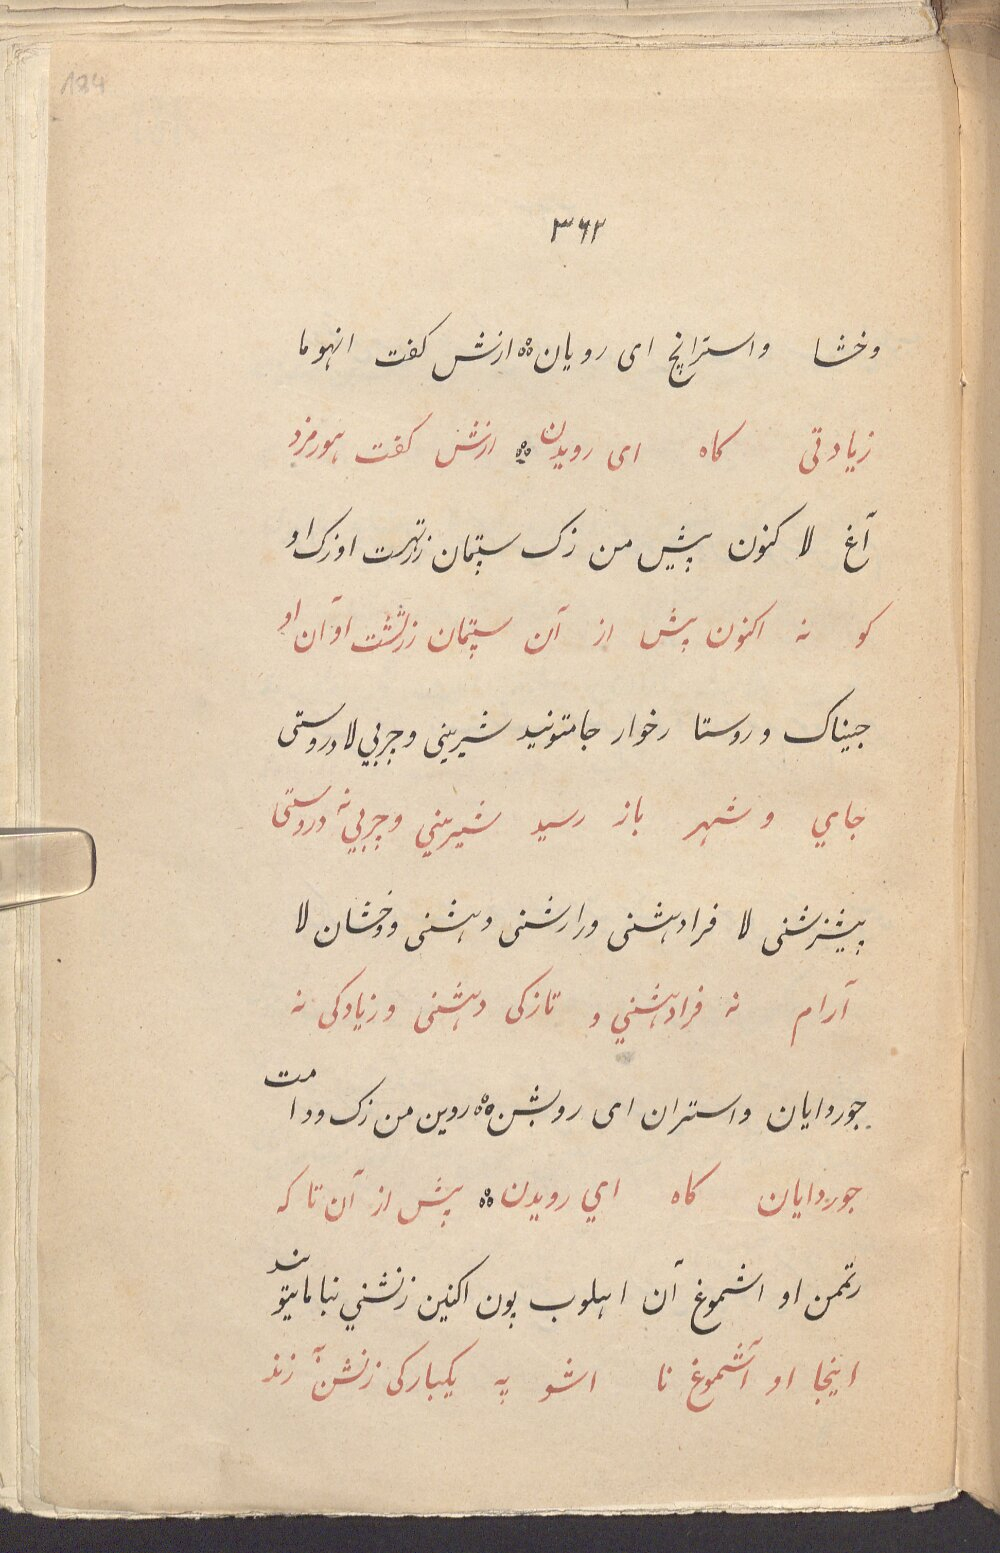 184
۳۶۲
وخشا واسترانچ ای رویان ازش کفت انهوما
زیادتی کاه ای رویدن ازش کفت هورمزد
آغ لا کنون پیش من زک سپتمان زرتهرت اوزک او
کو نه اکنون پش از آن سپتمان زرتشت او آن او
جیناک و روستا رخوار جامتونید شیرینی وچربی لا دروستی
جاي و شهر باز رسید شیریني وچربي نه دروستی
پیشزشنی لا فرادهشنی ورارشنی وهشنی ووخشان لا
آرام نه فرادهشني و تازکی دهشنی و زیادکی نه
جوردایان واستران ای رویشن روین من زک ودا مت
جوردایان کاه اي رویدن پش از آن تا که
رتمن او اشموغ آن اهلوب پون اکنین زنشني نبامایتوند
اینجا او آشموغ نا اشو په یکبارکی زنشن زند